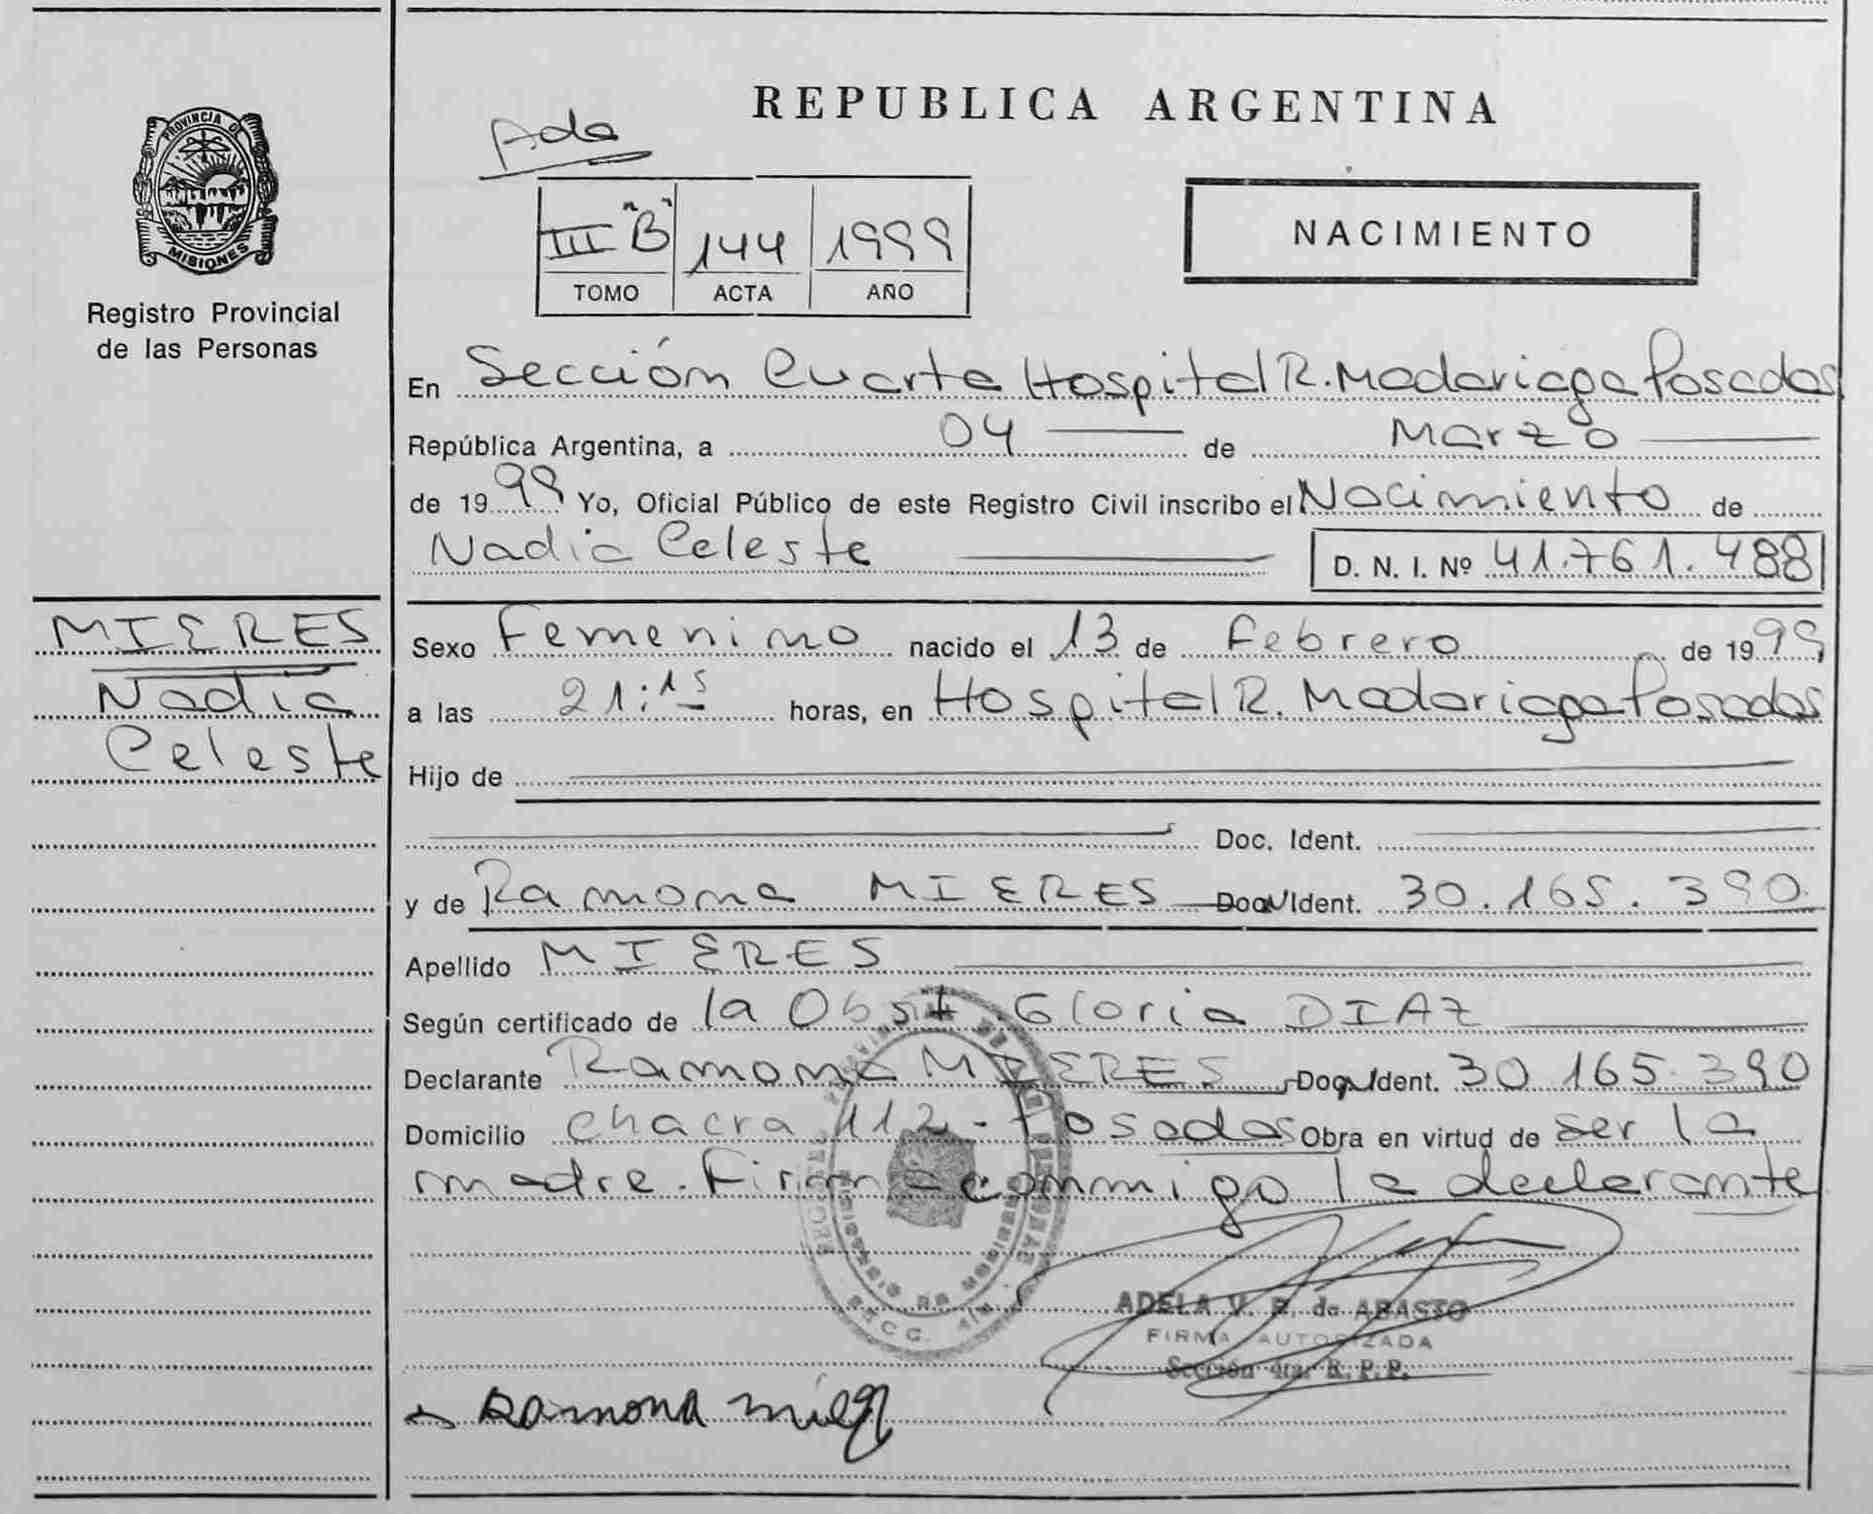 REPUBLICA ARGENTINA
Ada
PROVINCIA DE
MISIONES
Registro Provincial
de las Personas
III "B" 144 1999
TOMO ACTA AÑO
NACIMIENTO
En Sección Cuarta Hospital R. Madariaga Posadas
República Argentina, a 04 de Marzo
de 1999 Yo, Oficial Público de este Registro Civil inscribo el Nacimiento de
Nadia Celeste D. N. I. Nº 41.761.488
MIERES
Nadia
Celeste
Sexo Femenino nacido el 13 de Febrero de 1999
a las 21:15 horas, en Hospital R. Madariaga Posadas
Hijo de
Doc. Ident.
y de Ramona MIERES Doc. Ident. 30.165.390
Apellido MIERES
Según certificado de la Obst. Gloria DIAZ
Declarante Ramona MIERES Doc. Ident. 30 165.390
Domicilio Chacra 112 - Posadas Obra en virtud de ser la
madre. Firma conmigo la declarante
ADELA V. de ABASTO
FIRMA AUTORIZADA
Sección 4ta. R. P. P.
Ramona